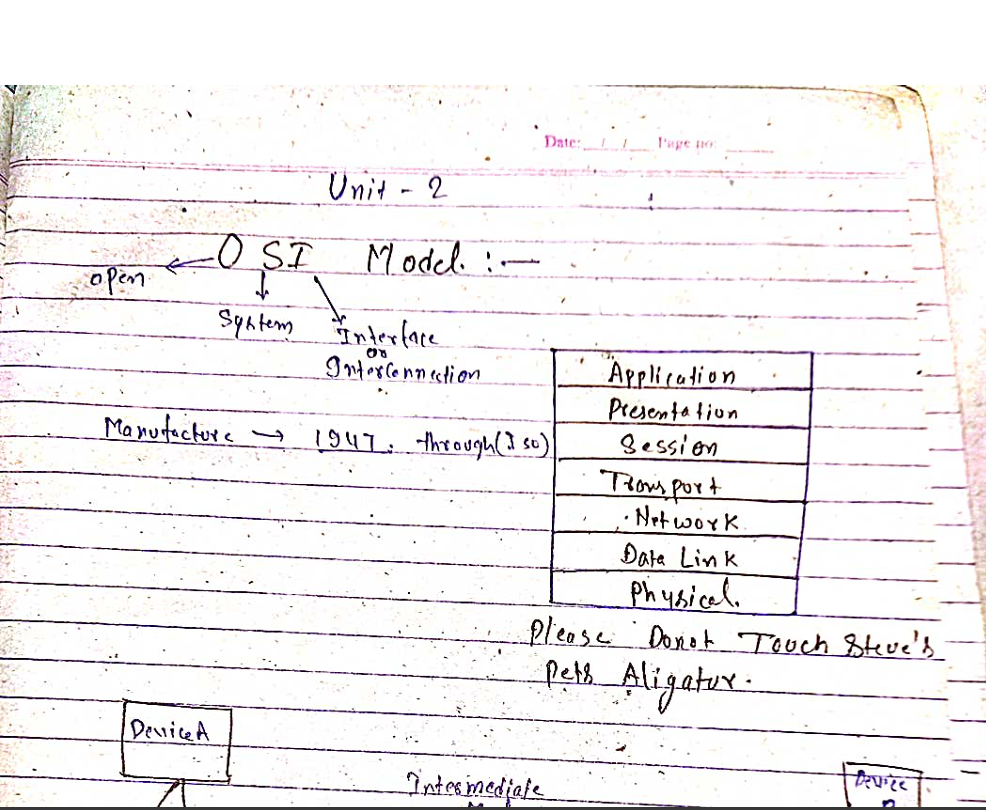 Date: / / Page no:
Unit - 2
OSI Model :-
open
System
Interface
or
Interconnection
Manufacture → 1947. through (Iso)
Application
Presentation
Session
Transport
Network
Data Link
Physical.
Please Donot Touch Steve's
Pets Aligator.
Device A
Intermediate
Device